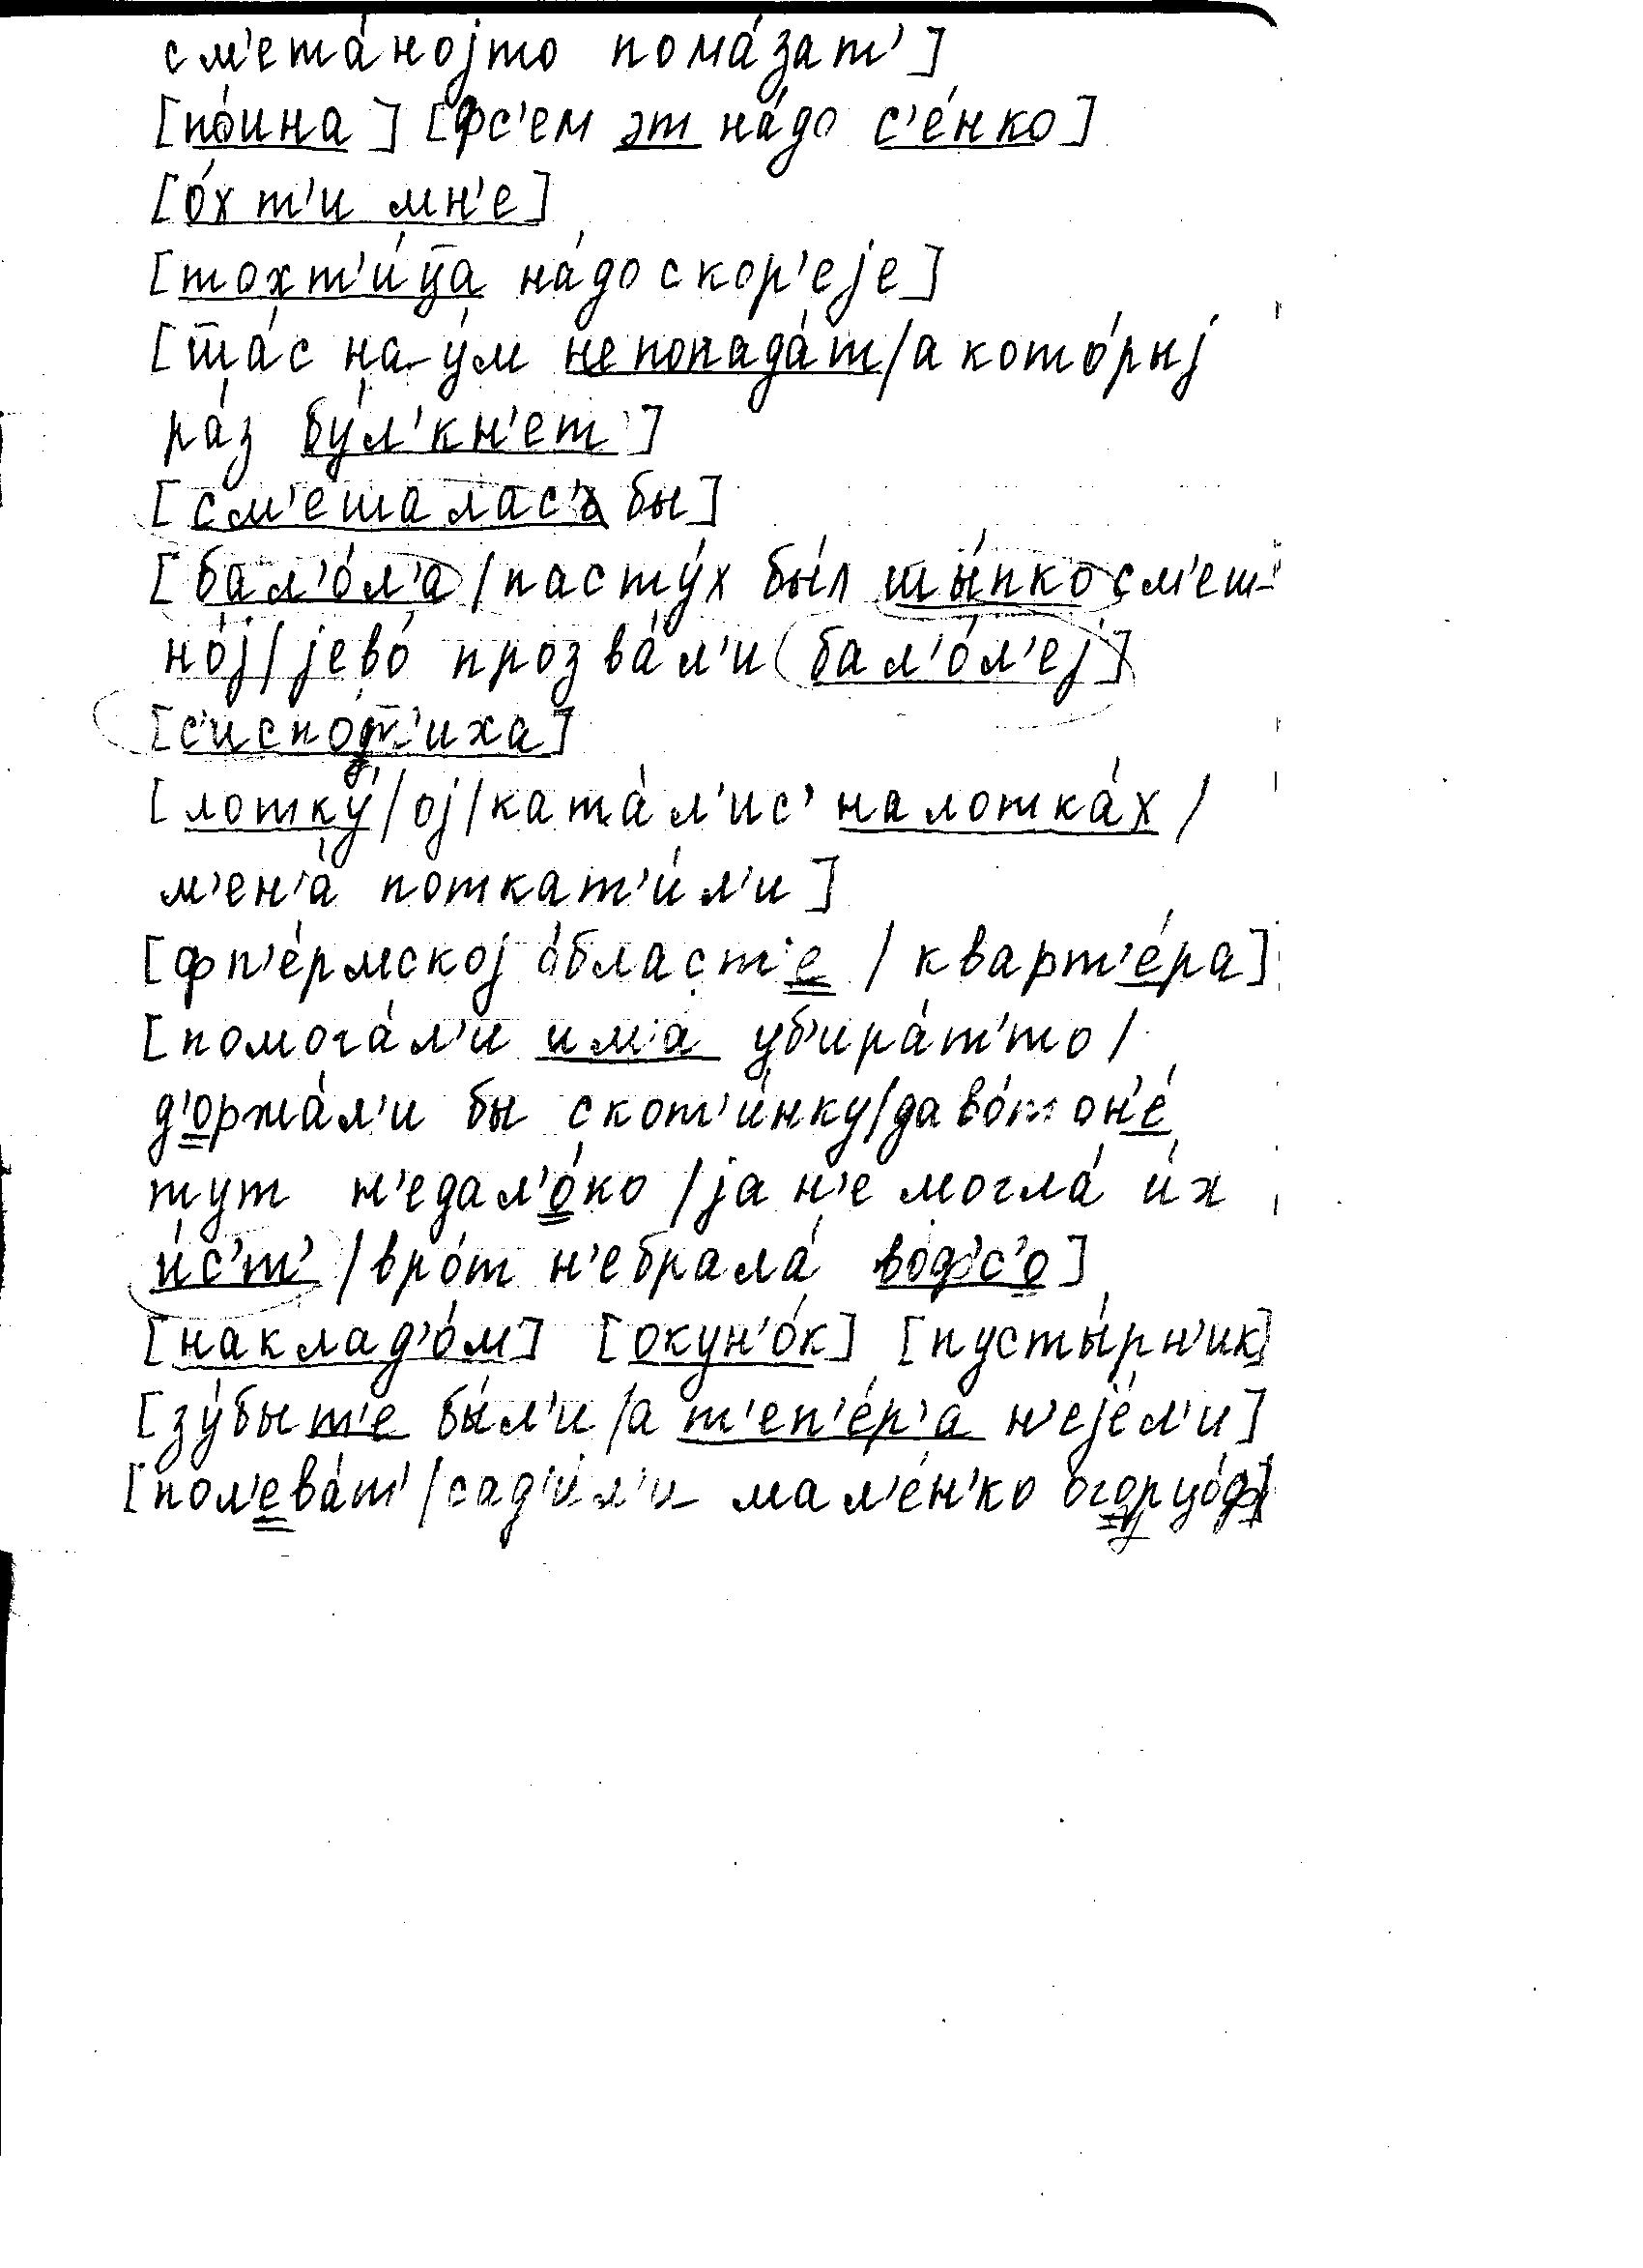 см'ета́нојто пома́зат']
[по́ина] [фс'ем эт на́до с'е́нко]
[о́хт'и мн'е]
[тохт'и́ц̄а на́до скор'еје]
[т̄а́с на у́м не попада́т/а кото́рыј
ра́з бу́л'кн'ет]
[см'ешалас'а бы]
[бал'о́л'а/пасту́х бы́л шы́пко см'еш-
но́ј/јево́ прозва́л'и бал'о́л'еј]
[с'испод'иха]
[лотку́/ој/ката́л'ис' на лотка́х/
м'ен'а́ поткат'и́л'и]
[фп'е́рмској о́бласт'е/кварт'е́ра]
[помога́л'и им'а уб'ира́т'то/
д'оржа́л'и бы скот'и́нку/да во́т он'е́
тут н'едал'о́ко/ја н'е могла́ и́х
и́с'т'/вро́т н'ебрала́ воф'с'о]
[наклад'о́м] [окун'о́к] [пусты́рн'ик]
[зу́быт'е бы́л'и/а т'еп'е́р'а н'еје́л'и]
[пол'ева́т'/сад'и́л'и мал'е́н'ко огорцо́ф]